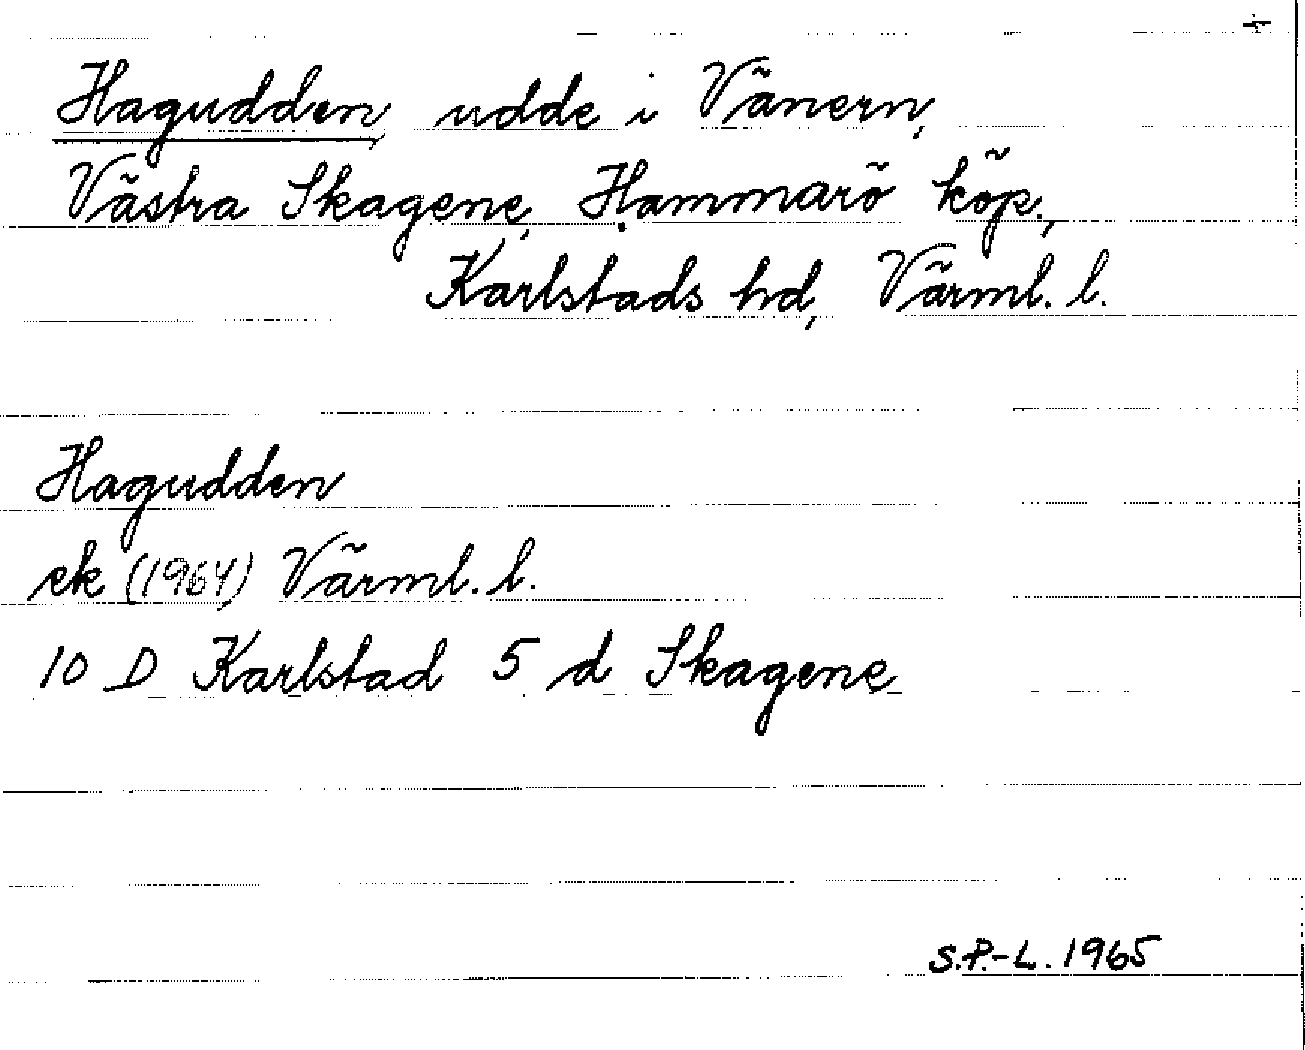 +
Hagudden, udde i Vänern,
Västra Skagene, Hammarö köp.,
Karlstads hd, Värml. l.
Hagudden
ek (1964) Värml. l.
10 D Karlstad 5 d Skagene
S.P.-L. 1965